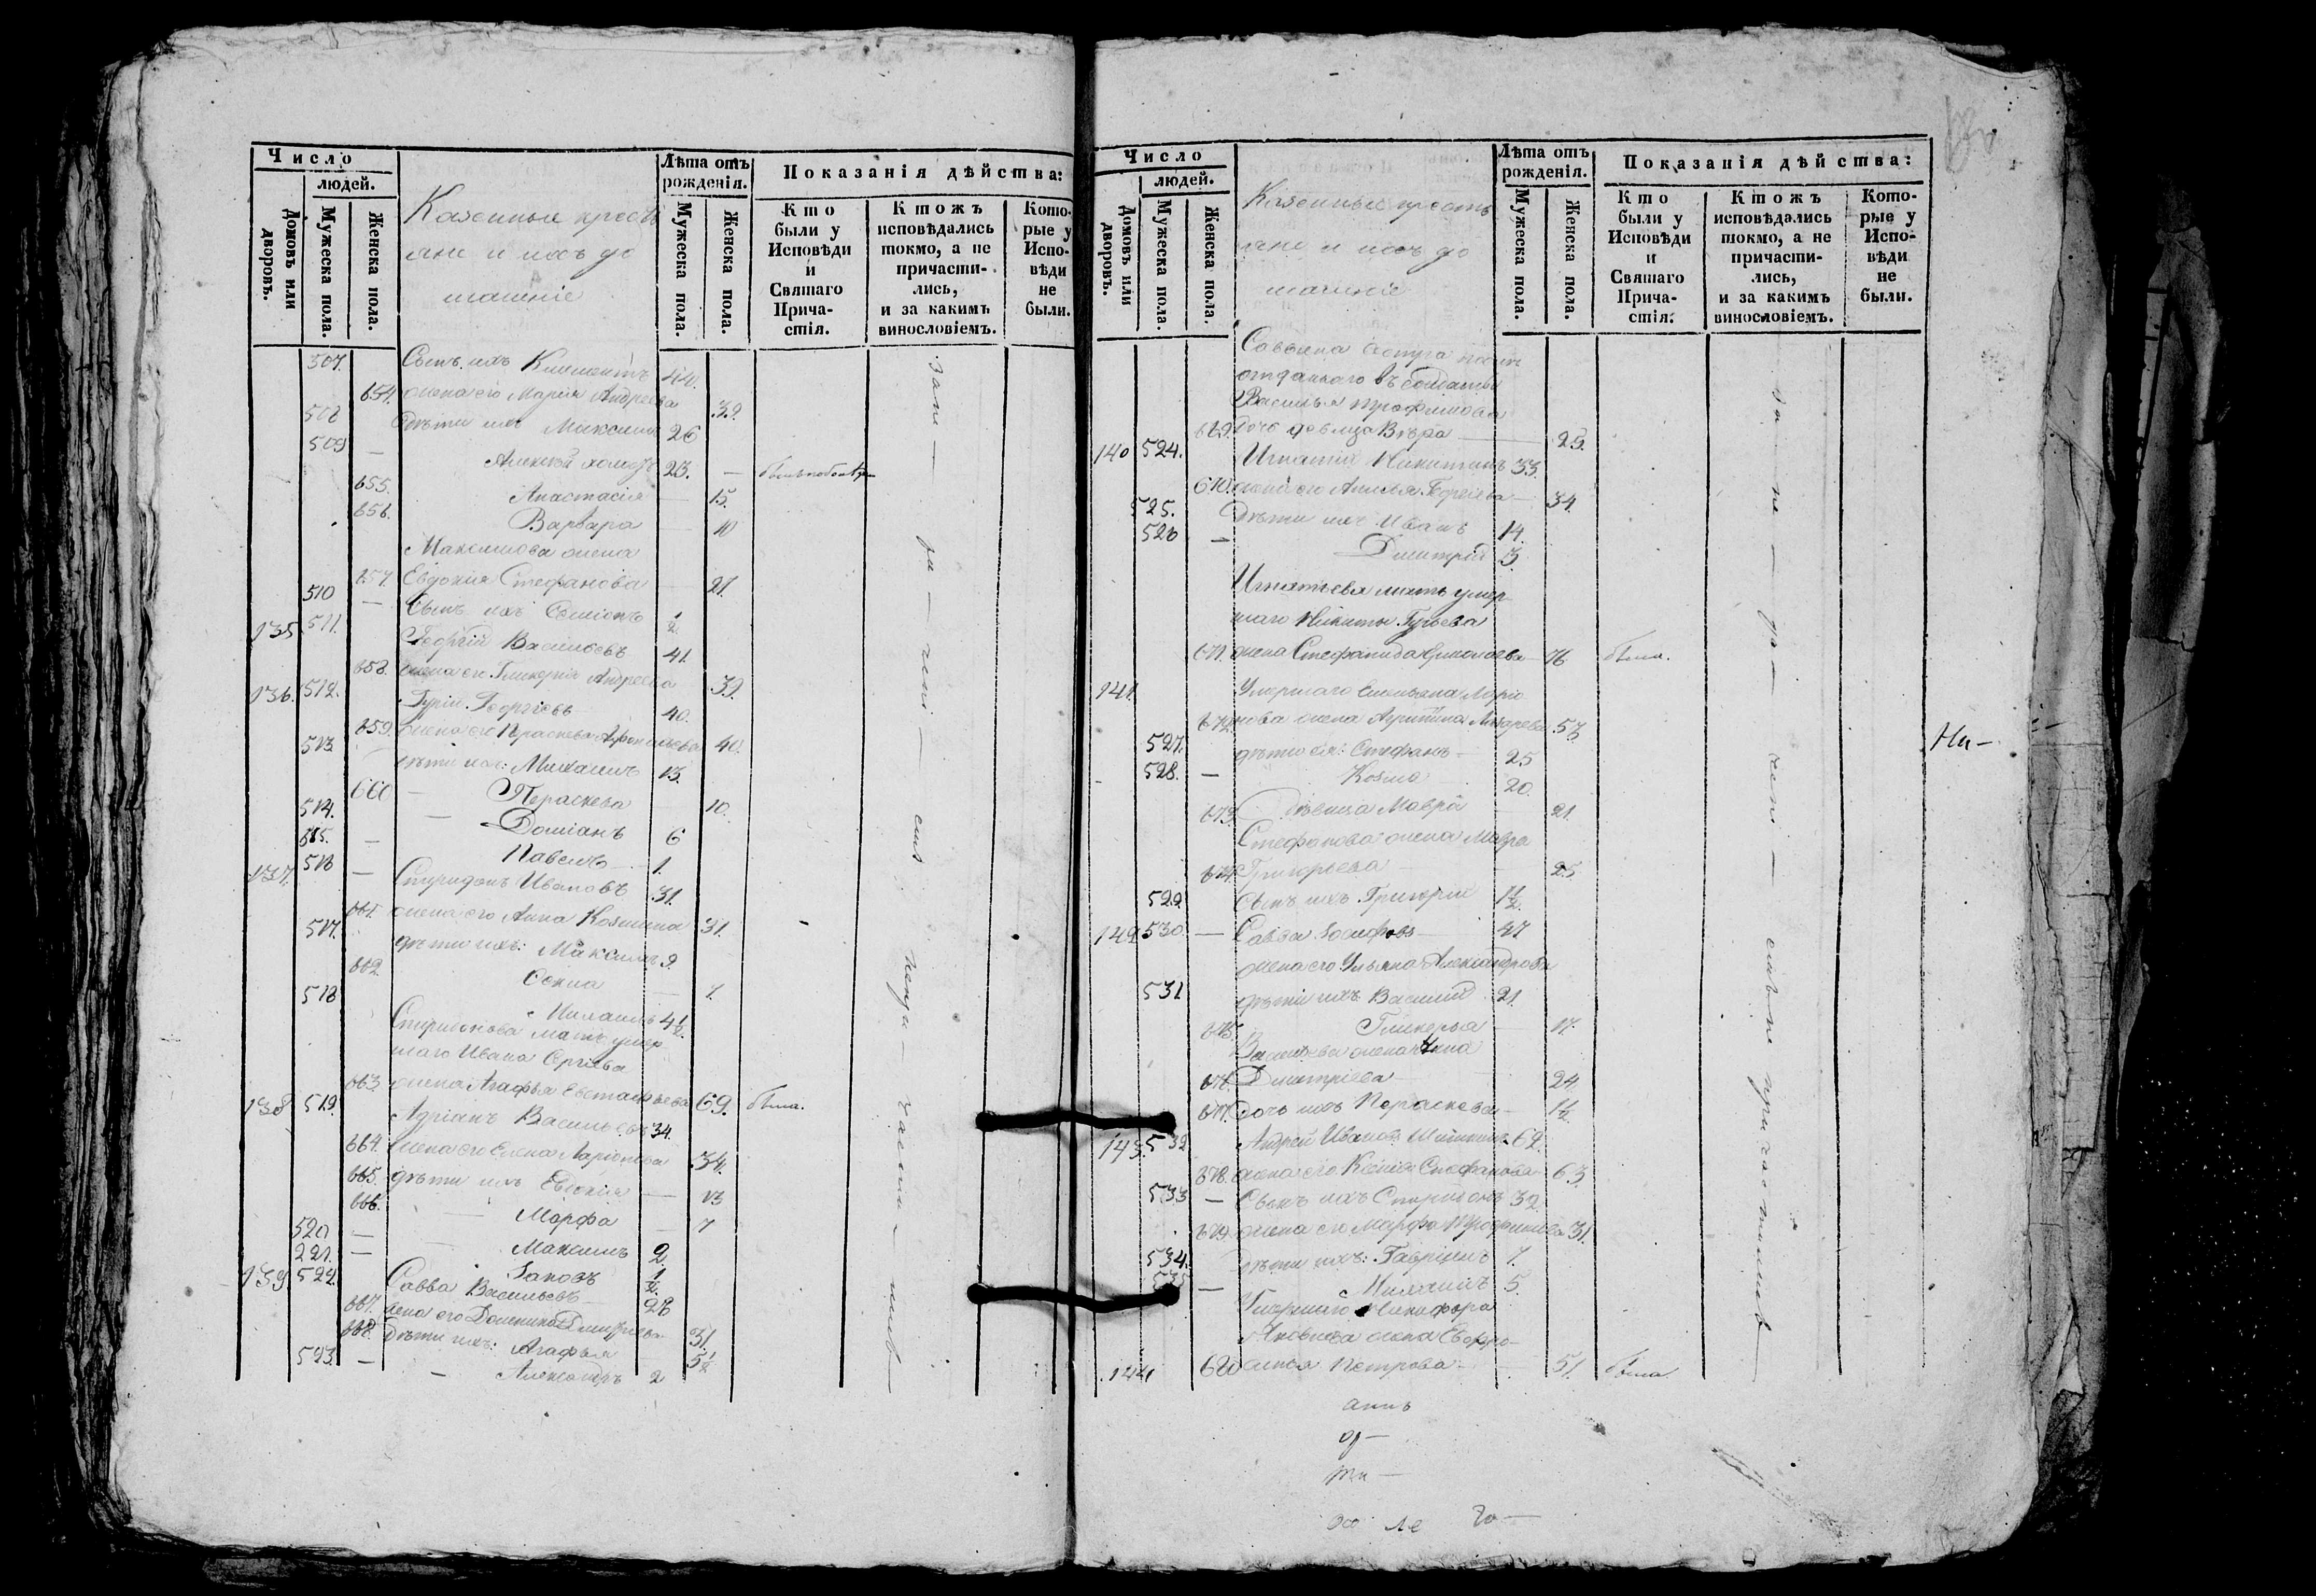 Число
людей.
Домовъ или дворовъ.
Мужеска пола.
Женска пола.
Казенные кресть
яне и ихъ до
машніе
Лѣта отъ рожденія.
Мужеска пола.
Женска пола.
Показанія дѣйства:
Кто были у Исповѣди и Святаго Причастія.
Ктожъ исповѣдались токмо, а не причастились, и за какимъ винословіемъ.
Которые у Исповѣди не были.
507. Сынъ ихъ Климентъ 44.
654. жена его Марія Андреева 39.
508 Дѣти ихъ Максимъ 26
509 — Алексей холостъ 23. —
655. Анастасія — 15.
656. Варвара — 10
Максимова жена
657. Евдокія Стефанова — 21.
510 — Сынъ ихъ Симіонъ ½
135. 511. Георгій Васильевъ 41.
658. жена его Гликерія Андреева 39.
136. 512. Гурій Георгіевъ 40.
659. жена его Параскева 40.
513 дѣти ихъ: Михаилъ 13.
660 — Параскева 10.
514. — Доміанъ 6
515. — Павелъ 1.
137. 516 — Спиридонъ Ивановъ 31.
661. жена его Анна Козмина 31.
517. дѣти ихъ: Максимъ 9.
662. Ѳекла — 7.
518 Михаилъ 4½
Спиридонова мать умер
шаго Ивана Сергіева
663 жена Агафья Евстафьева 69. была.
138 519. Адріанъ Васильевъ 34.
664. жена его Елена Ларіонова 34.
665. дѣти ихъ Евдокія — 13
666. — Марфа — 7
520 — Максимъ 2
221. — Іаковъ ½
139. 522. Савва Васильевъ 28
667. жена его Домника Дмитріева 31.
668. дѣти ихъ: Агафья 5½
523. — Александръ 2
за — ри — чені — емъ
Число
людей.
Домовъ или дворовъ.
Мужеска пола.
Женска пола.
Казенные кресть
яне и ихъ до
машніе
Лѣта отъ рожденія.
Мужеска пола.
Женска пола.
Показанія дѣйства:
Кто были у Исповѣди и Святаго Причастія.
Ктожъ исповѣдались токмо, а не причастились, и за какимъ винословіемъ.
Которые у Исповѣди не были.
Саввина сестра
отданнаго въ солдаты
Василья Трофимова
669. дочь девица Вѣра — 25.
140 524. Игнатій Никитинъ 33.
670. жена его Георгіева — 34.
525. Дѣти ихъ Иванъ 14.
526 — Дмитрій 3.
Игнатьева мать умер
шаго Никиты Гурьева
671. жена Стефанида — 76. была.
141. Умершаго Емельяна Ларіо
672. нова жена Агрипина Андреева 57.
527. дѣти ея: Стефанъ — 25
528. — Козма 20.
673. Дѣвица Мавра — 21.
Стефанова жена Мавра
674. Григорьева — 25
529. Сынъ ихъ Григорій 1½
142 530. — Савва Іосифовъ — 47
жена его Ульяна Александрова
531 дѣти ихъ Василій 21.
675. Гликерья — 17.
Васильева жена Анна
676. Дмитріева — 24.
677. дочь ихъ Параскева — 1½
143. 532 Андрей Ивановъ 62.
678. жена его Ксенія Стефанова 63
533 — Сынъ ихъ Спиридонъ 32.
679. жена его Марфа Трофимова 31.
534. дѣти ихъ: Гавріилъ 7.
535 — Михаилъ 5.
Умершаго Никифора
Яковлева жена Евфро-
144 680 синья Петрова — 51. была.
Ни —